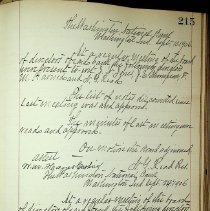 215
The Washington National Bank
Washington Ind Sept 12, 1906
At a regular meeting of the board
of directors of said bank the following directors
were present to wit
and A. G. Read
The list of notes discounted since
last meeting was read and approved.
The minutes of last meeting were
read and approved.
On motion the board adjourned,
attest
A. G. Read Pres.
The Washington National Bank
Washington Ind Sept 1906
At a regular meeting of the board
of directors of said bank the following directors